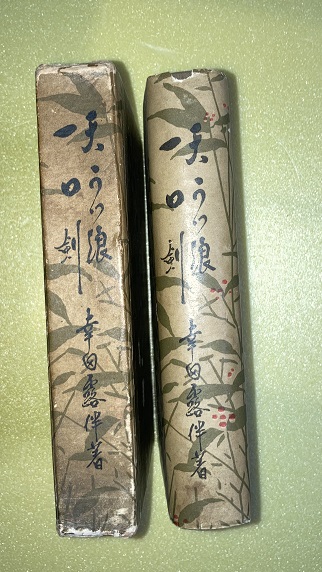 天うつ浪
一口劍
幸田露伴著
天うつ浪
一口劍
幸田露伴著